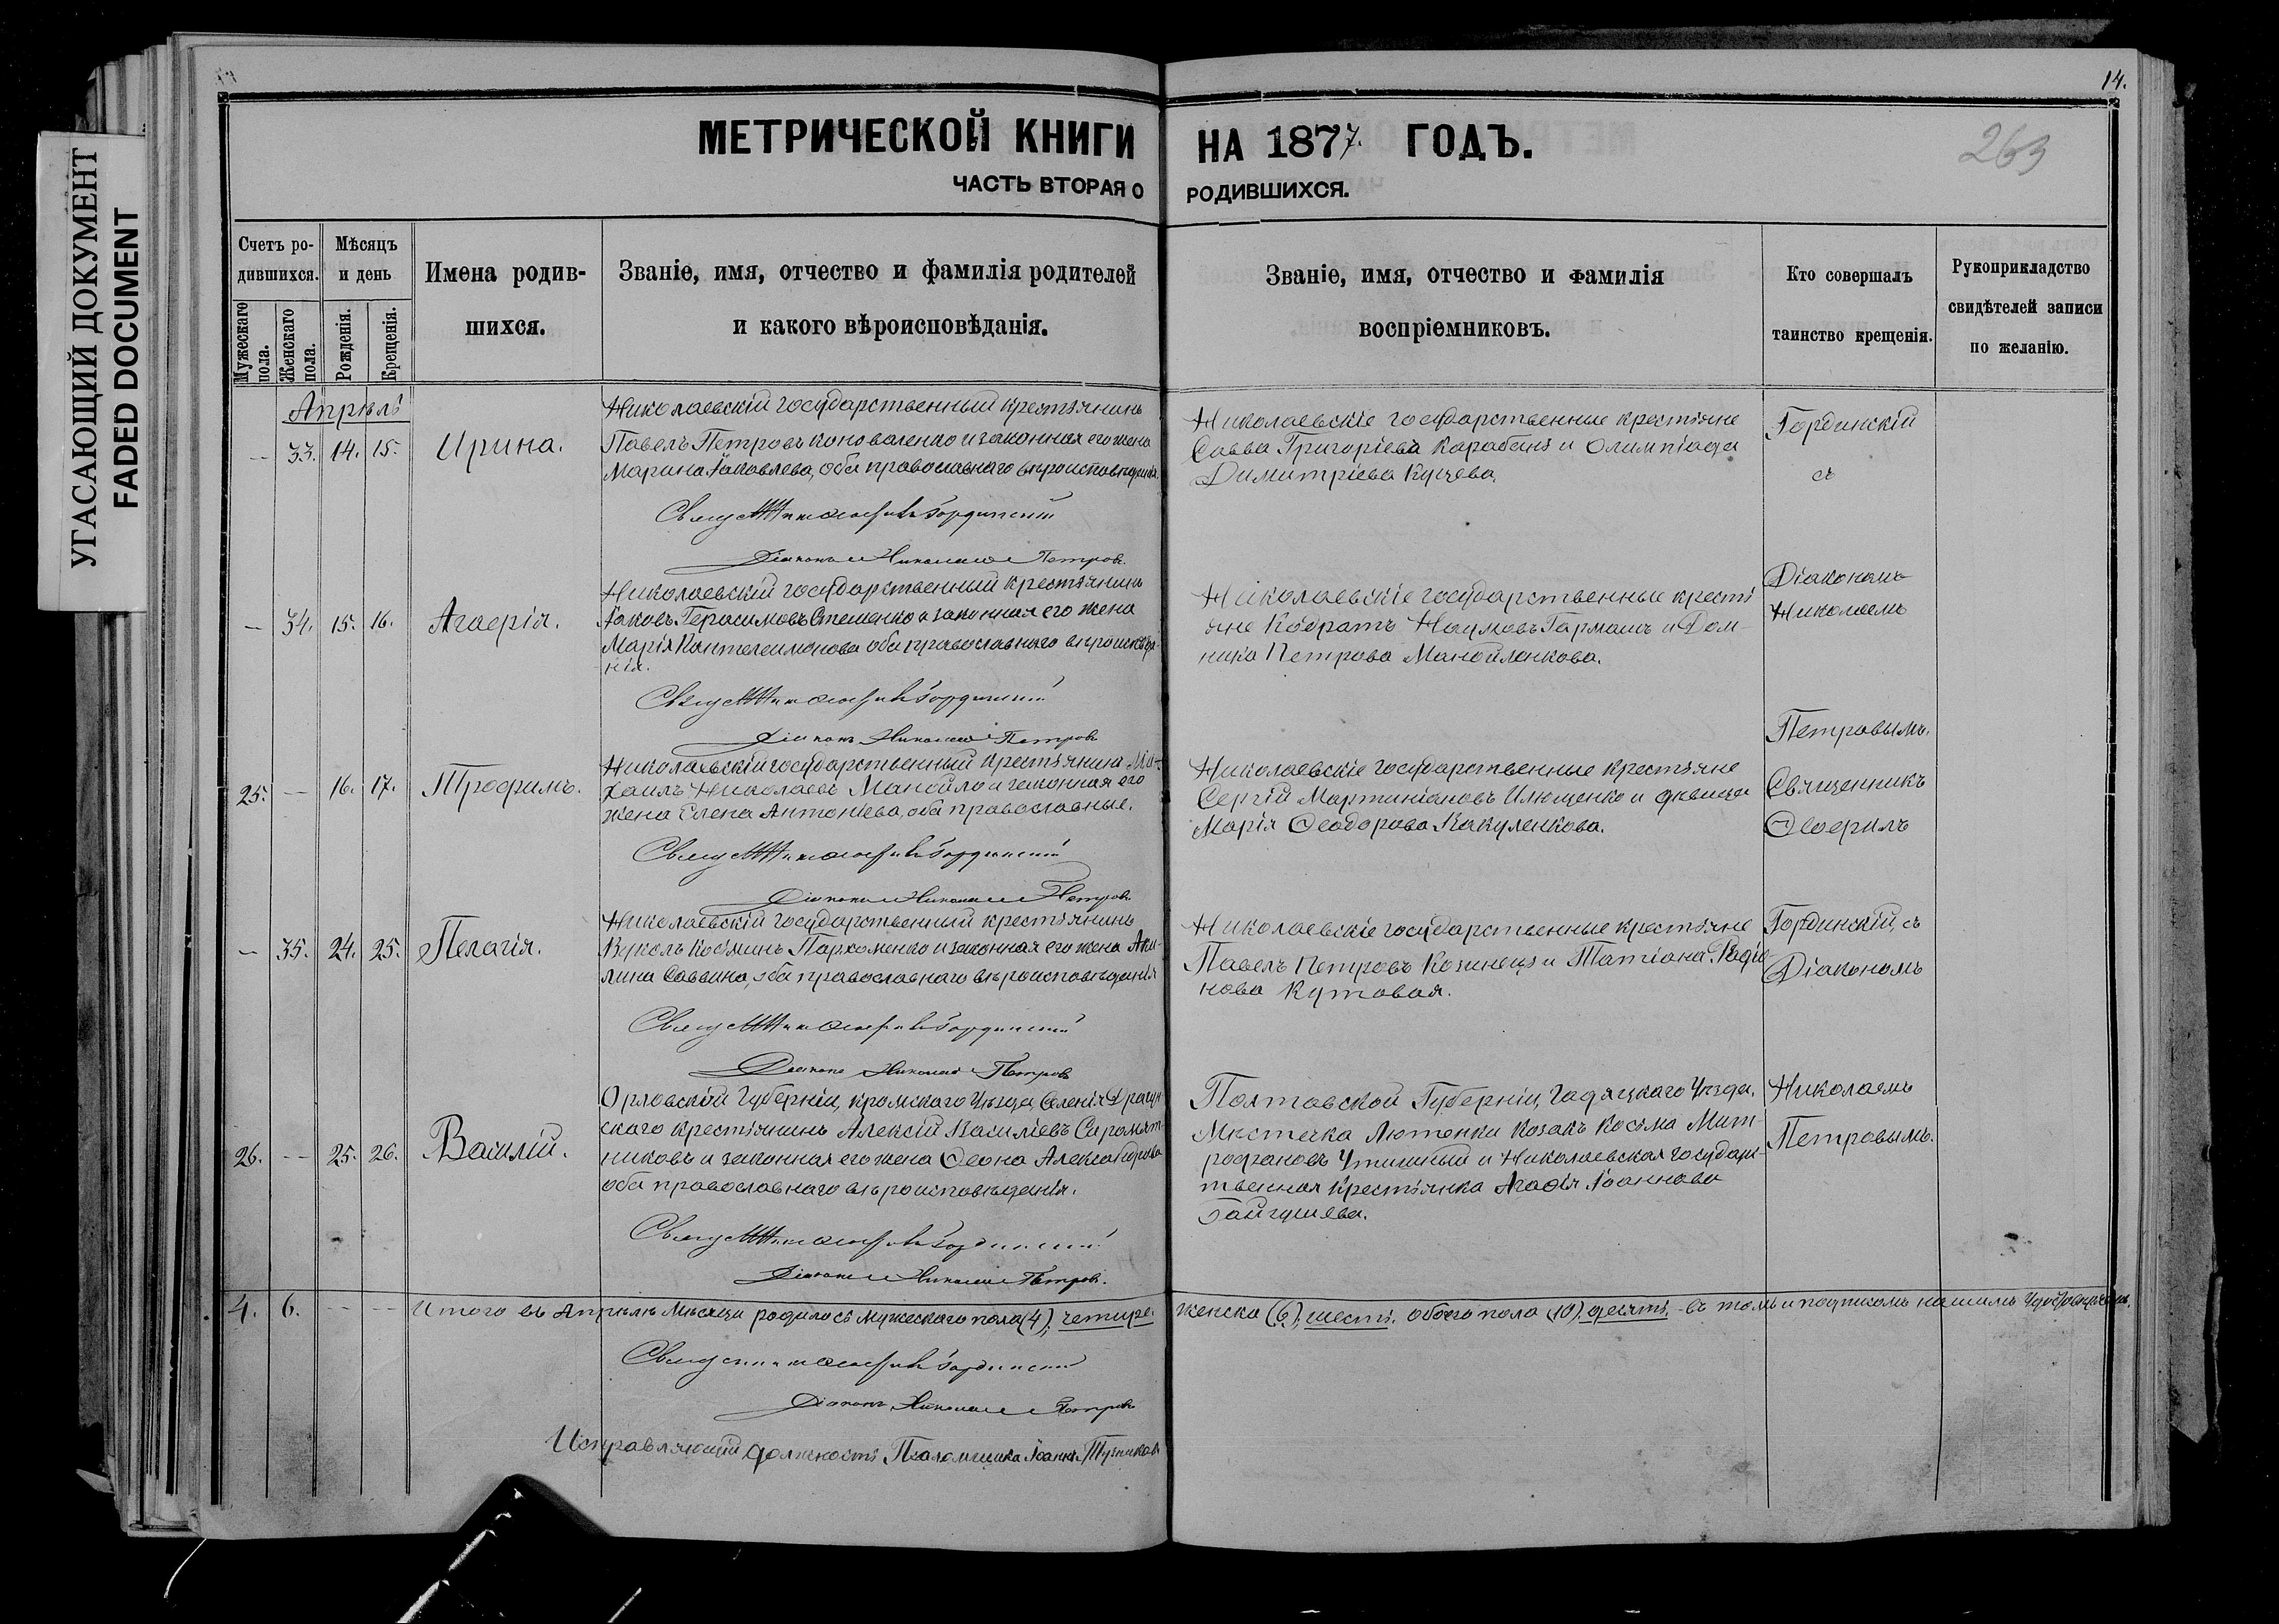 УГАСАЮЩИЙ ДОКУМЕНТ
FADED DOCUMENT
14.
269
МЕТРИЧЕСКОЙ КНИГИ НА 1877. ГОДЪ.
ЧАСТЬ ВТОРАЯ О РОДИВШИХСЯ.
Счетъ ро-
дившихся.
Мужескаго пола.
Женскаго пола.
Мѣсяцъ
и день
Рожденія.
Крещенія.
Имена родив-
шихся.
Званіе, имя, отчество и фамилія родителей
и какого вѣроисповѣданія.
Званіе, имя, отчество и фамилія
воспріемниковъ.
Кто совершалъ
таинство крещенія.
Рукоприкладство
свидѣтелей записи
по желанію.
Апрѣль
— 33. 14. 15. Ирина.
Николаевскій государственный крестьянинъ
Павелъ Петровъ Коноваленко и законная его жена
Марина Іаковлева, оба православнаго вѣроисповѣданія.
Священникъ Ѳеофилъ Гординскій
Діаконъ Николай Петровъ.
Николаевскіе государственные крестьяне
Савва Григоріевъ Карабанъ и Олимпіада
Димитріева Куцева.
Гординскій
съ
— 34. 15. 16. Агаѳрія.
Николаевскій государственный крестьянинъ
Іаковъ Герасимовъ Стешенко и законная его жена
Марія Пантелеимонова оба православнаго вѣроисповѣда-
нія.
Священникъ Ѳеофилъ Гординскій
Діаконъ Николай Петровъ
Николаевскіе государственные кресть
яне Кодратъ Наумовъ Гармашъ и Дом-
ника Петрова Манойленкова.
Діакономъ
Николаемъ
Петровымъ.
25. — 16. 17. Трофимъ.
Николаевскій государственный крестьянинъ Ми-
хаилъ Николаевъ Манойло и законная его
жена Елена Антоніева, оба православные.
Священникъ Ѳеофилъ Гординскій
Діаконъ Николай Петровъ
Николаевскіе государственные крестьяне
Сергій Мартиніановъ Илющенко и девица
Марія Ѳеодорова Какуленкова.
Священникъ
Ѳеофилъ
— 35. 24. 25. Пелагія.
Николаевскій государственный крестьянинъ
Вуколъ Косьминъ Пархоменко и законная его жена Аки-
лина Саввина, оба православнаго вѣроисповѣданія
Священникъ Ѳеофилъ Гординскій
Діаконъ Николай Петровъ
Николаевскіе государственные крестьяне
Павелъ Петровъ Козинецъ и Татіана Радіо-
нова Кутовая.
Гординскій, съ
Діакономъ
26. — 25. 26. Василій.
Орловской Губерніи, Кромскаго Уѣзда, Селенія Драгун
скаго крестьянинъ Алексій Василіевъ Сиромят-
никовъ и законная его жена Ѳеона Александрова
оба православнаго вѣроисповѣданія.
Священникъ Ѳеофилъ Гординскій
Діаконъ Николай Петровъ.
Полтавской Губерніи, Гадяцкаго Уѣзда,
Мѣстечка Лютенки Козакъ Косьма Мит-
рофановъ и Николаевская государс-
твенная крестьянка Агафія Іоаннова
Байгушева.
Николаемъ
Петровымъ.
4. 6. — — Итого въ Апрѣлѣ Мѣсяцѣ родилось мужескаго пола (4), четыре женска (6), шесть, обоего пола (10) десять, въ томъ и подписомъ нашимъ удостовѣряемъ.
Священникъ Ѳеофилъ Гординскій
Діаконъ Николай Петровъ
Исправляющій должность Псаломщика Іоаннъ